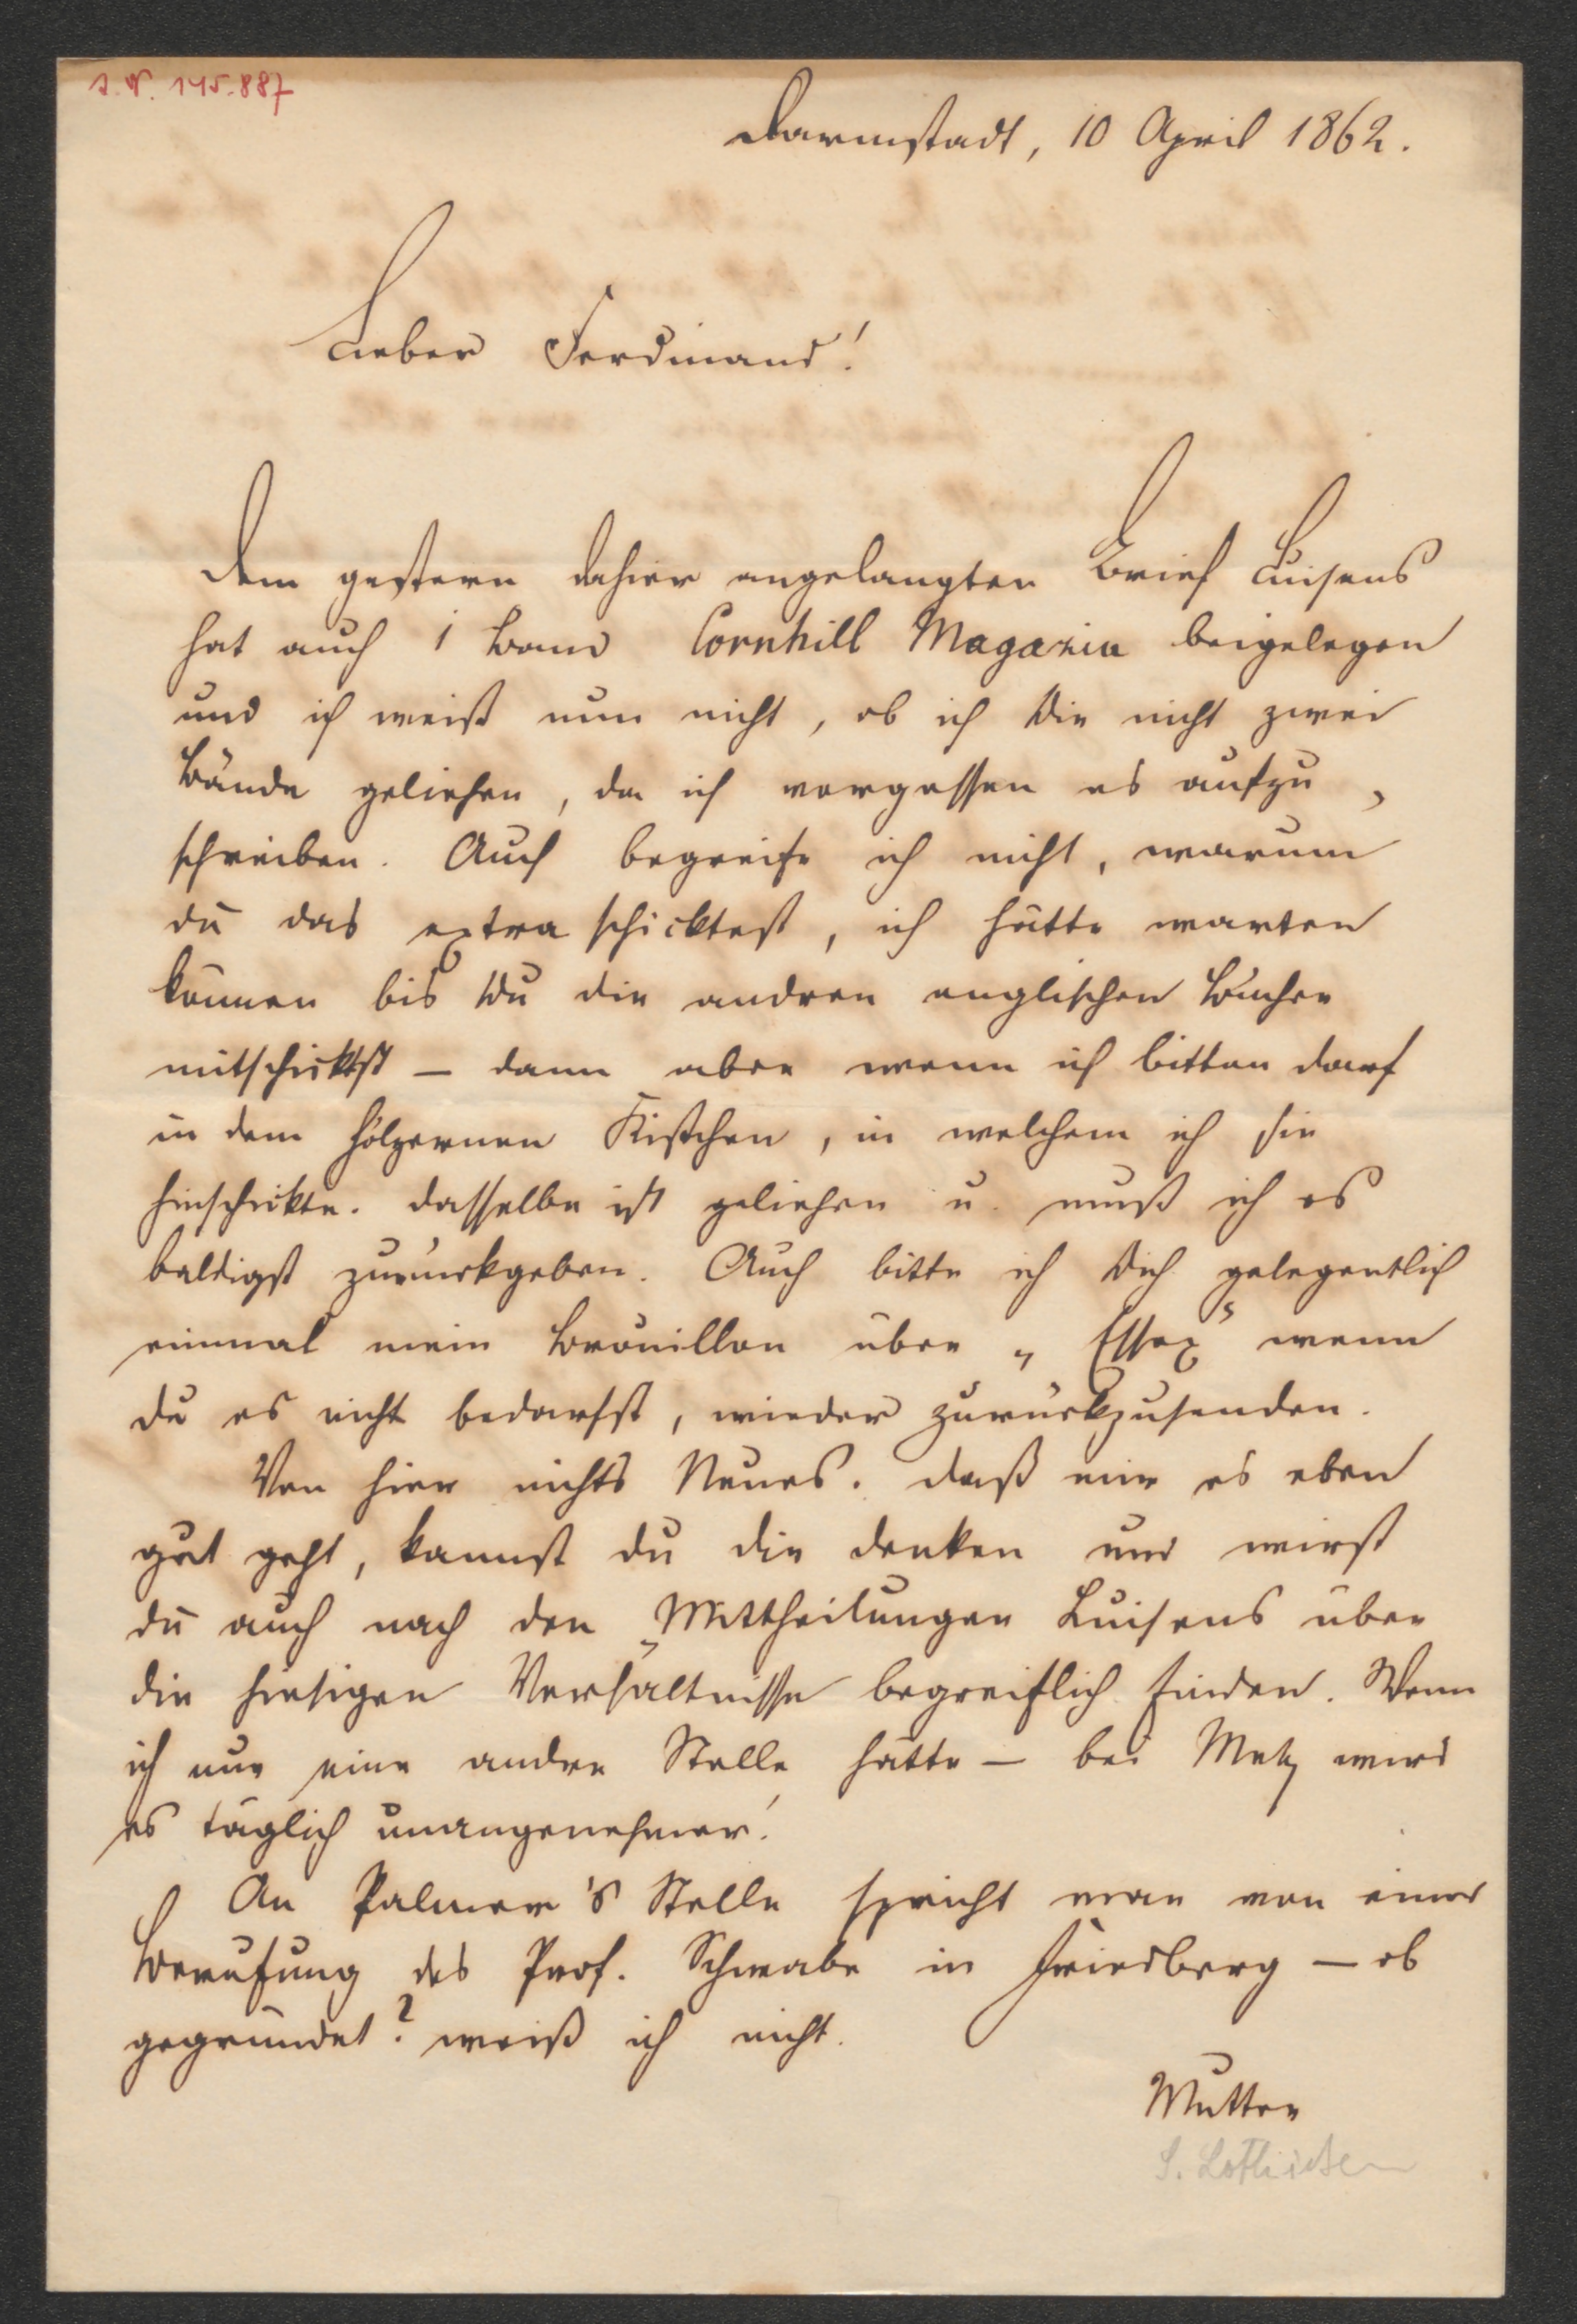 I. N. 145.887
Darmstadt, 10 April 1862.
Lieber Ferdinand!
Dem gestern dahier angelangten Brief Luisens
hat auch 1 Band Cornhill Magazin beigelegen
und ich weiß nun nicht, ob ich Dir nicht zwei
Bände geliehen, da ich vergessen es aufzu-
schreiben. Auch begreife ich nicht, warum
du das extra schicktest, ich hätte warten
können bis Du die andren englischen Bücher
mitschickst – dann aber wenn ich bitten darf
in dem hölzernen Kistchen, in welchem ich sie
hinschickte. Dasselbe ist geliehen u. muß ich es
baldigst zurückgeben. Auch bitte ich Dich gelegentlich
einmal mein Brouillon über „Essex" wenn
du es nicht bedarfst, wieder zurückzusenden.
Von hier nichts Neues. Daß mir es eben
gut geht, kannst du dir denken und wirst
du auch nach den Mittheilungen Luisens über
die hiesigen Verhältnisse begreiflich finden. Wenn
ich nur eine andre Stelle hätte – bei Metz wird
es täglich unangenehmer!
An Palmer's Stelle spricht man von einer
Berufung des Prof. Schwabe in Friedberg – ob
gegründet? weiß ich nicht.
Mutter